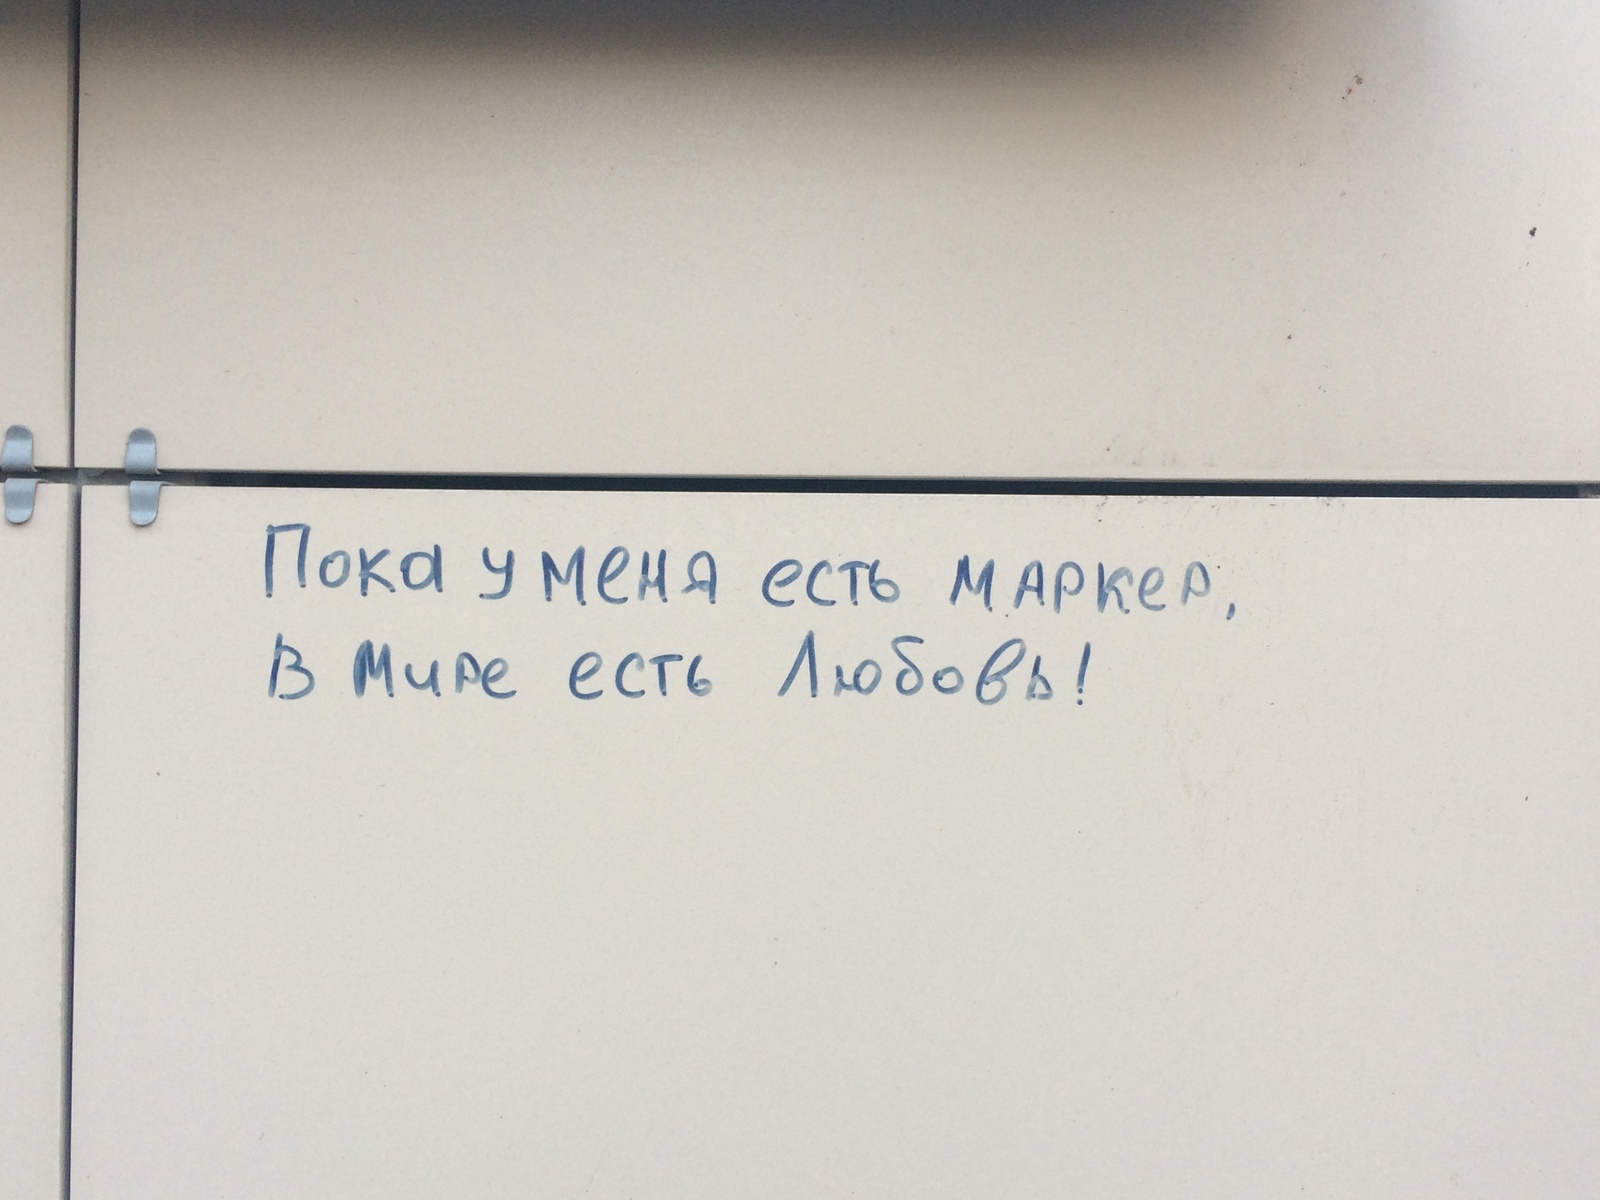 Пока у меня есть маркер,
в Мире есть Любовь!